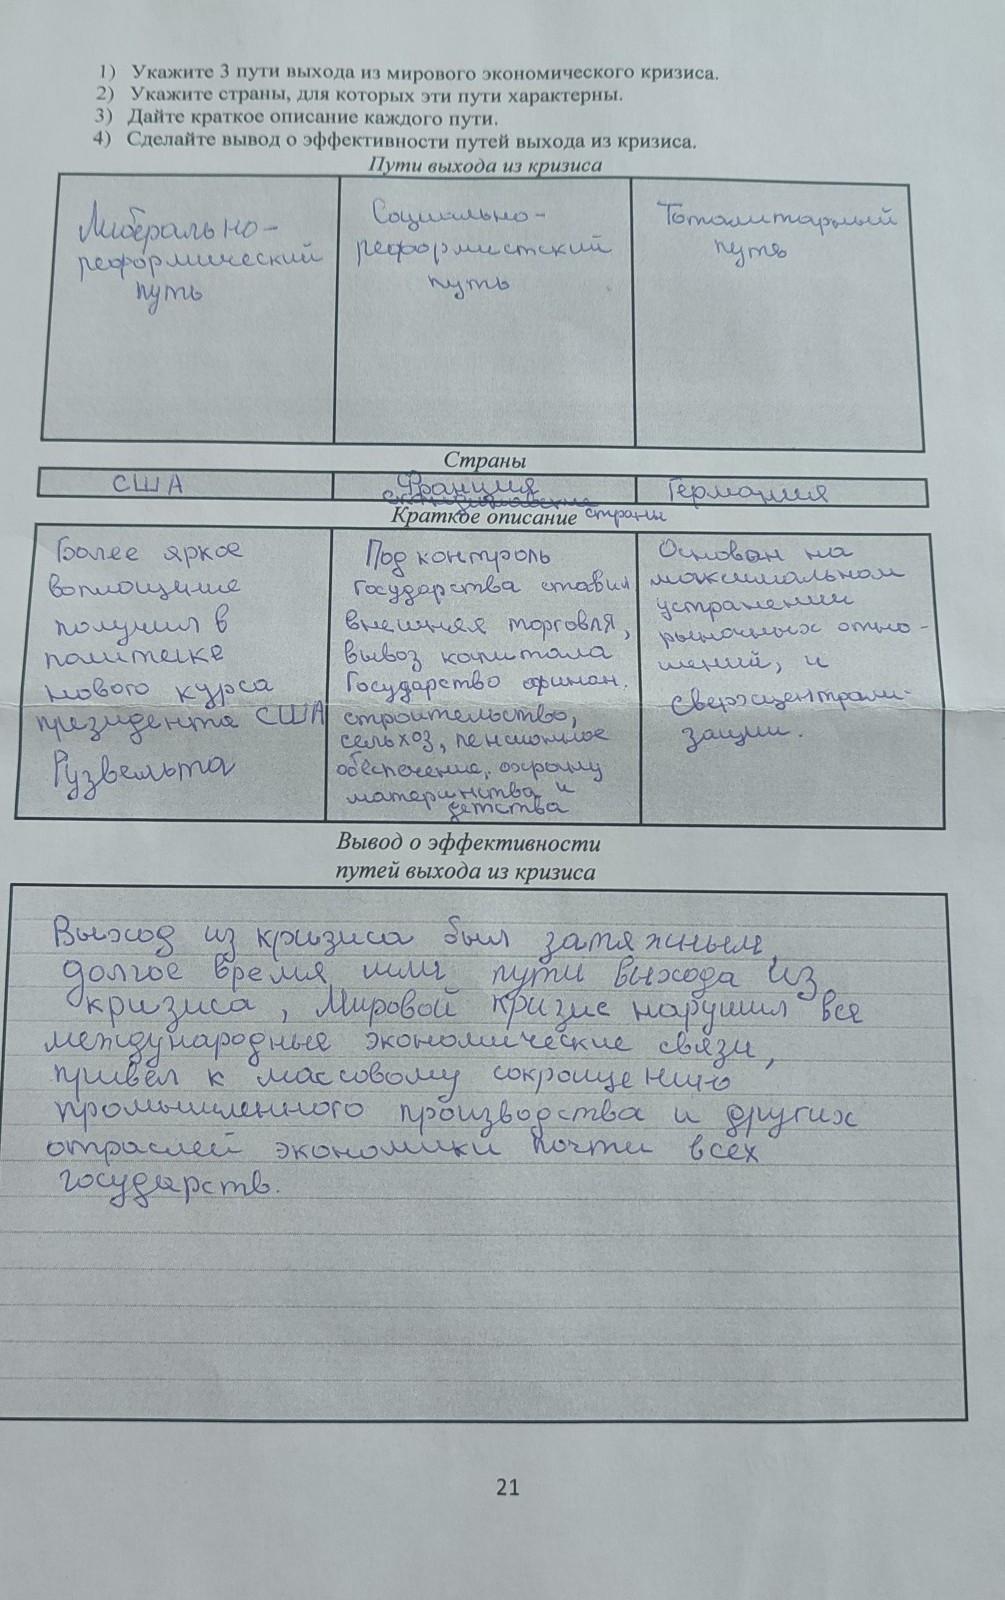 1) Укажите 3 пути выхода из мирового экономического кризиса.
2) Укажите страны, для которых эти пути характерны.
3) Дайте краткое описание каждого пути.
4) Сделайте вывод о эффективности путей выхода из кризиса.
Пути выхода из кризиса
Либерально-
реформический
путь
Социально-
реформистский
путь
Тоталитарный
путь
Страны
США
Франция
скандинавские страны
Германия
Краткое описание
Более яркое
воплощение
получил в
политеке
нового курса
президента США
Рузвельта
Под контроль
государства ставил
внешняя торговля,
вывоз капитала
Государство финан.
строительство,
сельхоз, пенсионное
обеспечение, охрану
материнства и
детства
Основан на
максимальном
устранении
рыночных отно-
шений, и
сверхцентрали-
зации.
Вывод о эффективности
путей выхода из кризиса
Выход из кризиса был затяжным,
долгое время шли пути выхода из
кризиса, Мировой кризис нарушил все
международные экономические связи,
привёл к массовому сокращению
промышленного производства и других
отраслей экономики почти всех
государств.
21